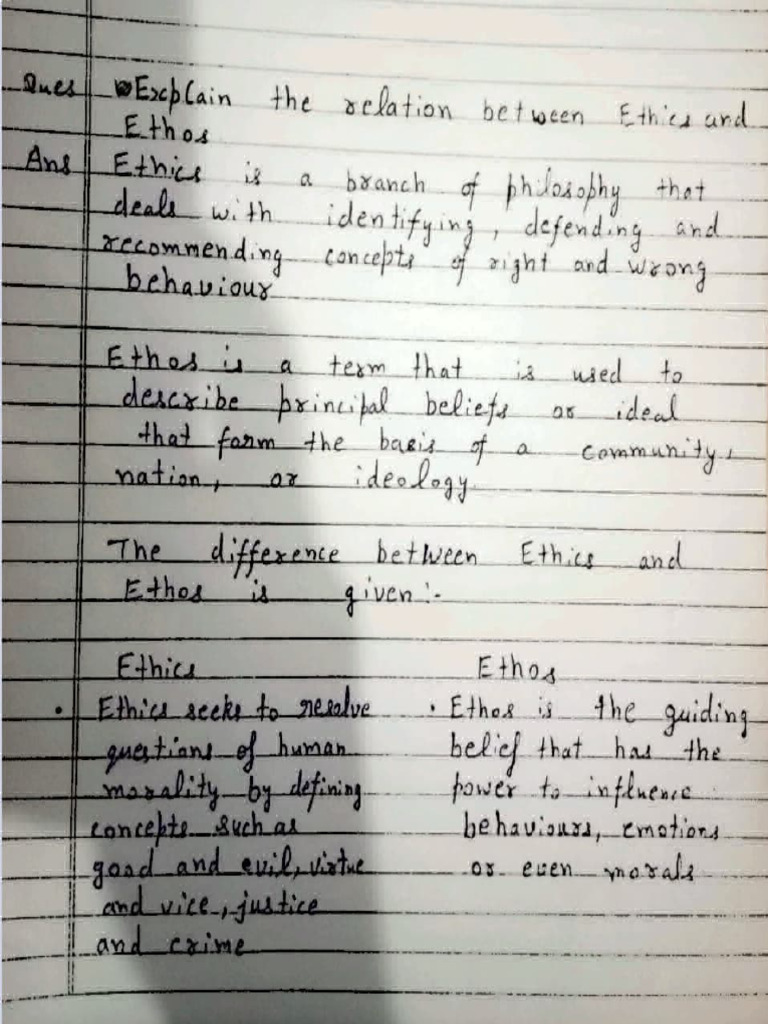 Ques Explain the relation between Ethics and
Ethos
Ans Ethics is a branch of philosophy that
deals with identifying, defending and
recommending concepts of right and wrong
behaviour
Ethos is a term that is used to
describe principal beliefs or ideal
that form the basis of a community,
nation, or ideology
The difference between Ethics and
Ethos is given:-
Ethics
• Ethics seeks to resolve
questions of human
morality by defining
concepts such as
good and evil, virtue
and vice, justice
and crime
Ethos
• Ethos is the guiding
belief that has the
power to influence
behaviours, emotions
or even morals